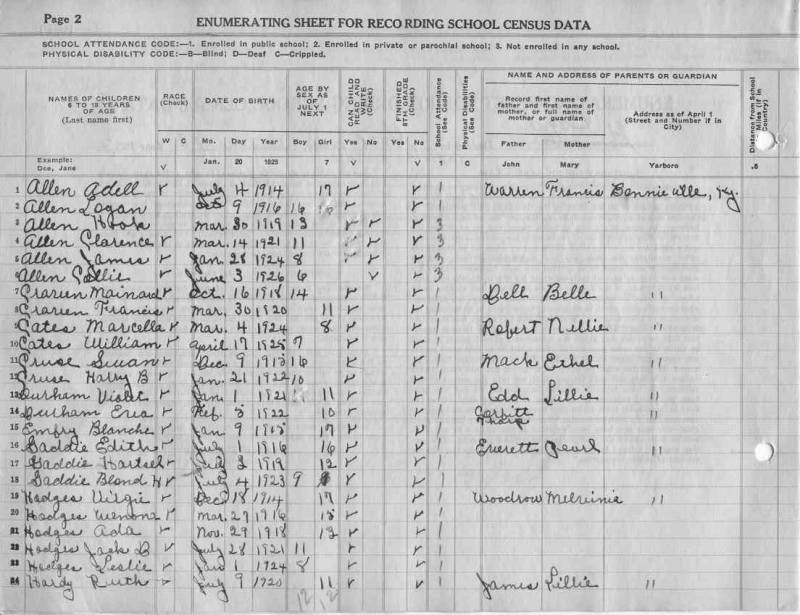 Page 2
ENUMERATING SHEET FOR RECORDING SCHOOL CENSUS DATA
SCHOOL ATTENDANCE CODE:—1. Enrolled in public school; 2. Enrolled in private or parochial school; 3. Not enrolled in any school.
PHYSICAL DISABILITY CODE:—B—Blind; D—Deaf C—Crippled.
NAMES OF CHILDREN 6 TO 18 YEARS OF AGE (Last name first)
RACE (Check)
W C
DATE OF BIRTH
Mo. Day Year
AGE BY SEX AS OF JULY 1 NEXT
Boy Girl
CAN CHILD READ AND WRITE (Check)
Yes No
FINISHED 8TH GRADE (Check)
Yes No
School Attendance (See Code)
1
Physical Disabilities (See Code)
C
NAME AND ADDRESS OF PARENTS OR GUARDIAN
Record first name of father and first name of mother, or full name of mother or guardian
Father Mother
Address as of April 1 (Street and Number if in City)
Distance from School Miles (If in Country)
Example: Doe, Jane V Jan. 20 1925 7 V V 1 John Mary Yarboro .5
1 Allen Adell July 4 1914 17 1 Warren Francis Bonnieville, Ky.
2 Allen Logan 9 1916 16 1
3 Allen Mar. 30 1919 13 3
4 Allen Clarence Mar. 14 1921 11 3
5 Allen James Jan. 28 1924 8 3
6 Allen June 3 1926 6 3
7 Oct. 16 1918 14 1 Dell Belle "
8 Francis Mar. 30 1920 11 1
9 Cates Marcella Mar. 4 1924 8 1 Robert Nellie "
10 Cates William April 17 1925 7 1
11 Cruse Dec. 9 16 1 Mack Ethel "
12 Cruse Harry B Jan. 21 1922 10 1
13 Durham Violet Jan. 1 1921 11 1 Edd Lillie "
14 Durham Feb. 1922 10 1 "
15 Emfry Blanche Jan. 9 17 1
16 Gaddie Edith July 1 1916 16 1 Everett Pearl "
17 Gaddie July 2 1919 12 1
18 Gaddie July 4 1923 9 1
19 Hodges Virgie Dec 18 1914 17 1 Woodrow "
20 Hodges Mar. 27 1916 1
21 Hodges Ada Nov. 29 1918 13 1
22 Hodges Jack B July 28 1921 11 1
23 Hodges Leslie Jan 1 1924 8 1
24 Hardy Ruth July 9 1920 11 1 James Lillie "
12 12